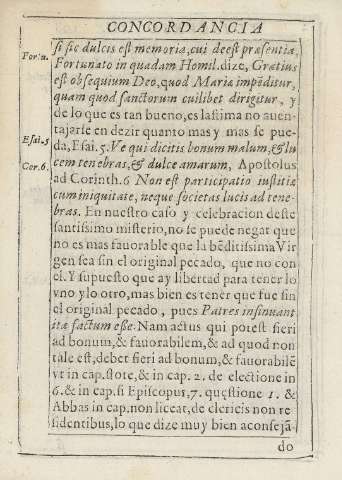 CONCORDANCIA
si sic dulcis est memoria, cui deest præsentia,
Fortu.
Fortunato in quadam Homil. dize, Gratius
est obsequium Deo, quod Mariæ impēditur,
quam quod sanctorum cuilibet dirigitur, y
de lo que es tan bueno, es lastima no auen-
tajarse en dezir quanto mas y mas se pue-
Esai. 5
da, Esai. 5. Ve qui dicitis bonum malum, & lu
cem tenebras, & dulce amarum, Apostolus
Cor. 6.
ad Corinth. 6 Non est participatio iustitiæ
cum iniquitate, neque societas lucis ad tene-
bras. En nuestro caso y celebracion deste
santissimo misterio, no se puede negar que
no es mas fauorable que la bēditissima Vir
gen sea sin el original pecado, que no con
el. Y supuesto que ay libertad para tener lo
vno y lo otro, mas bien es tener que fue sin
el original pecado, pues Patres insinuant
ita factum esse. Nam actus qui potest fieri
ad bonum, & fauorabilem, & ad quod non
tale est, debet fieri ad bonum, & fauorabilē
vt in cap. stote, & in cap. 2. de electione in
6. & in cap. si Episcopus, 7. quæstione 1. &
Abbas in cap. non liceat, de clericis non re
sidentibus, lo que dize muy bien aconsejā-
do